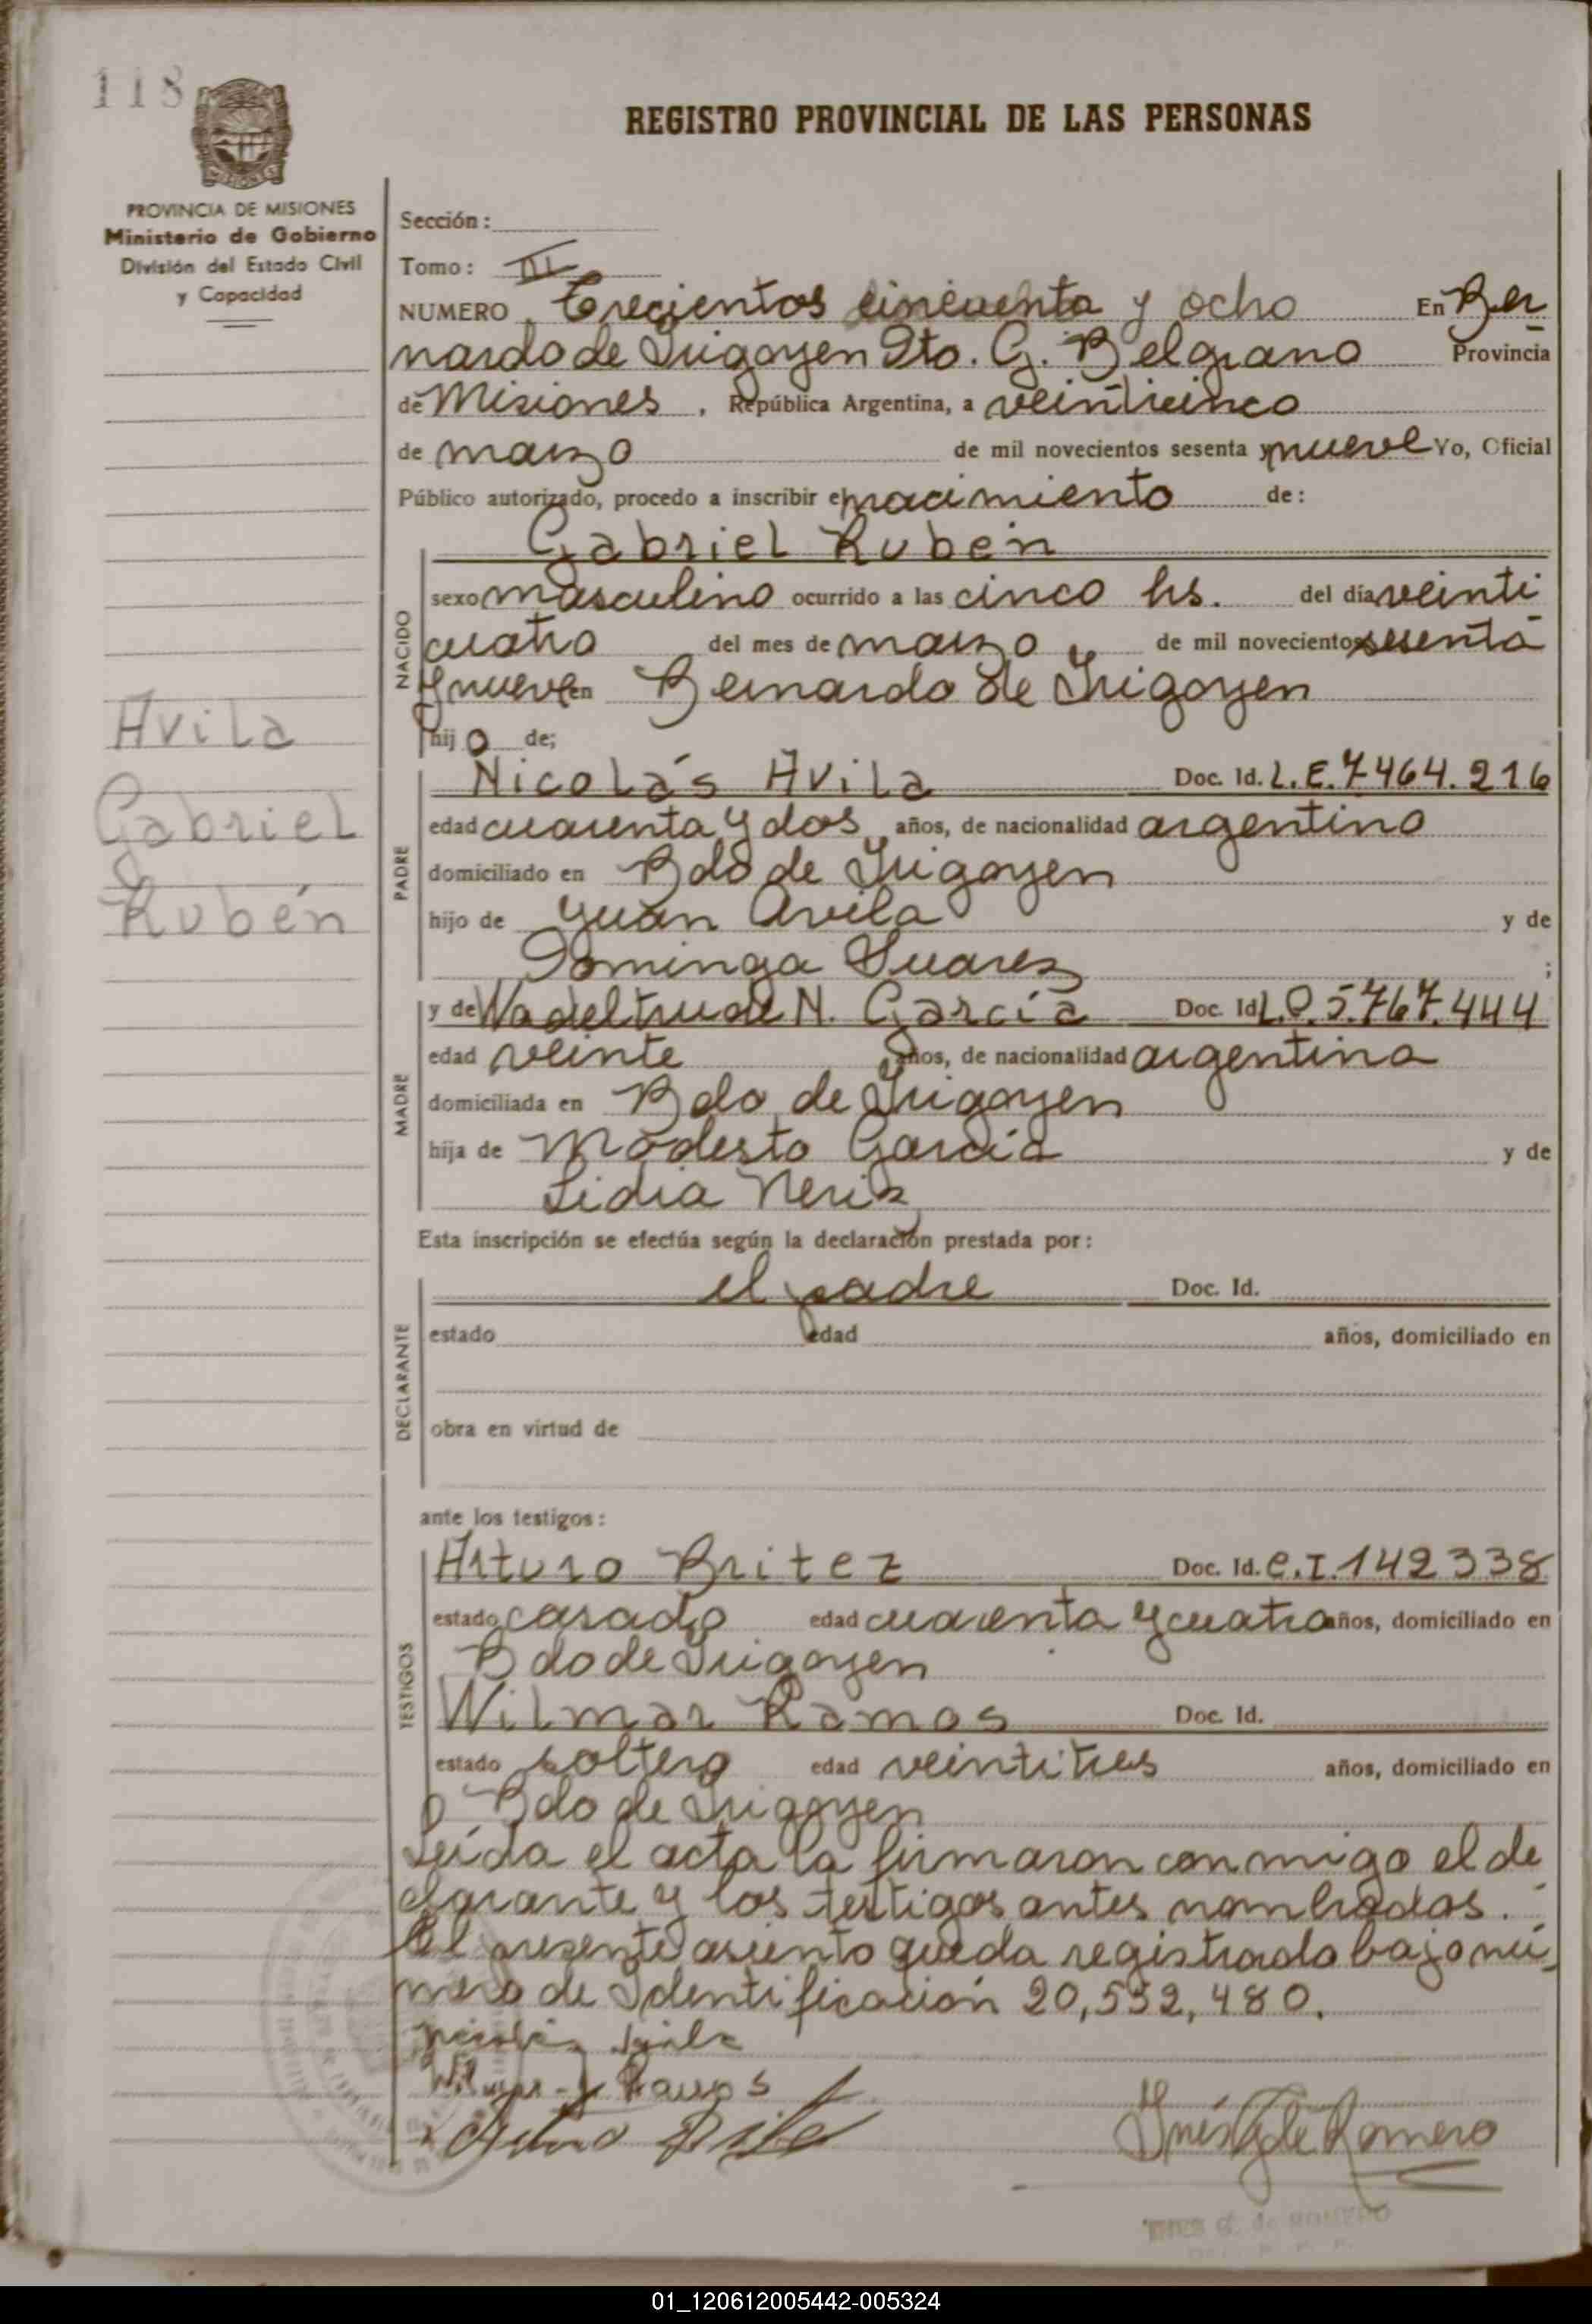 118
REGISTRO PROVINCIAL DE LAS PERSONAS
PROVINCIA DE MISIONES
Ministerio de Gobierno
División del Estado Civil
y Capacidad
Sección:
Tomo: III
NUMERO Trecientos cincuenta y ocho En Ber
nardo de Irigoyen Dto. G. Belgrano Provincia
de Misiones, República Argentina, a veinticinco
de marzo de mil novecientos sesenta y nueve Yo, Oficial
Público autorizado, procedo a inscribir el nacimiento de:
Gabriel Rubén
NACIDO
sexo masculino ocurrido a las cinco hs. del día veinti
cuatro del mes de marzo de mil novecientos sesenta
y nueve en Bernardo de Irigoyen
hijo de;
Avila
Gabriel
Rubén
PADRE
Nicolás Avila Doc. Id. L.E. 7464.216
edad cuarenta y dos años, de nacionalidad argentino
domiciliado en Bdo de Irigoyen
hijo de Juan Avila y de
Dominga Suarez ;
MADRE
y de Wadeltrude N. García Doc. Id L.C. 5.767.444
edad veinte años, de nacionalidad argentina
domiciliada en Bdo de Irigoyen
hija de Modesto García y de
Lidia Neriz
Esta inscripción se efectúa según la declaración prestada por:
DECLARANTE
el padre Doc. Id.
estado edad años, domiciliado en
obra en virtud de
ante los testigos:
TESTIGOS
Arturo Britez Doc. Id. C.I. 142338
estado casado edad cuarenta y cuatro años, domiciliado en
Bdo de Irigoyen
Wilmar Ramos Doc. Id.
estado soltero edad veintitres años, domiciliado en
Bdo de Irigoyen
Leída el acta la firmaron conmigo el de
clarante y los testigos antes nombrados.
El presente asiento queda registrado bajo nú
mero de Identificación 20,532,480.
Nicolás Avila
Wilmar Ramos
Arturo Britez
Inés G de Romero
INES G. de ROMERO
01_120612005442-005324